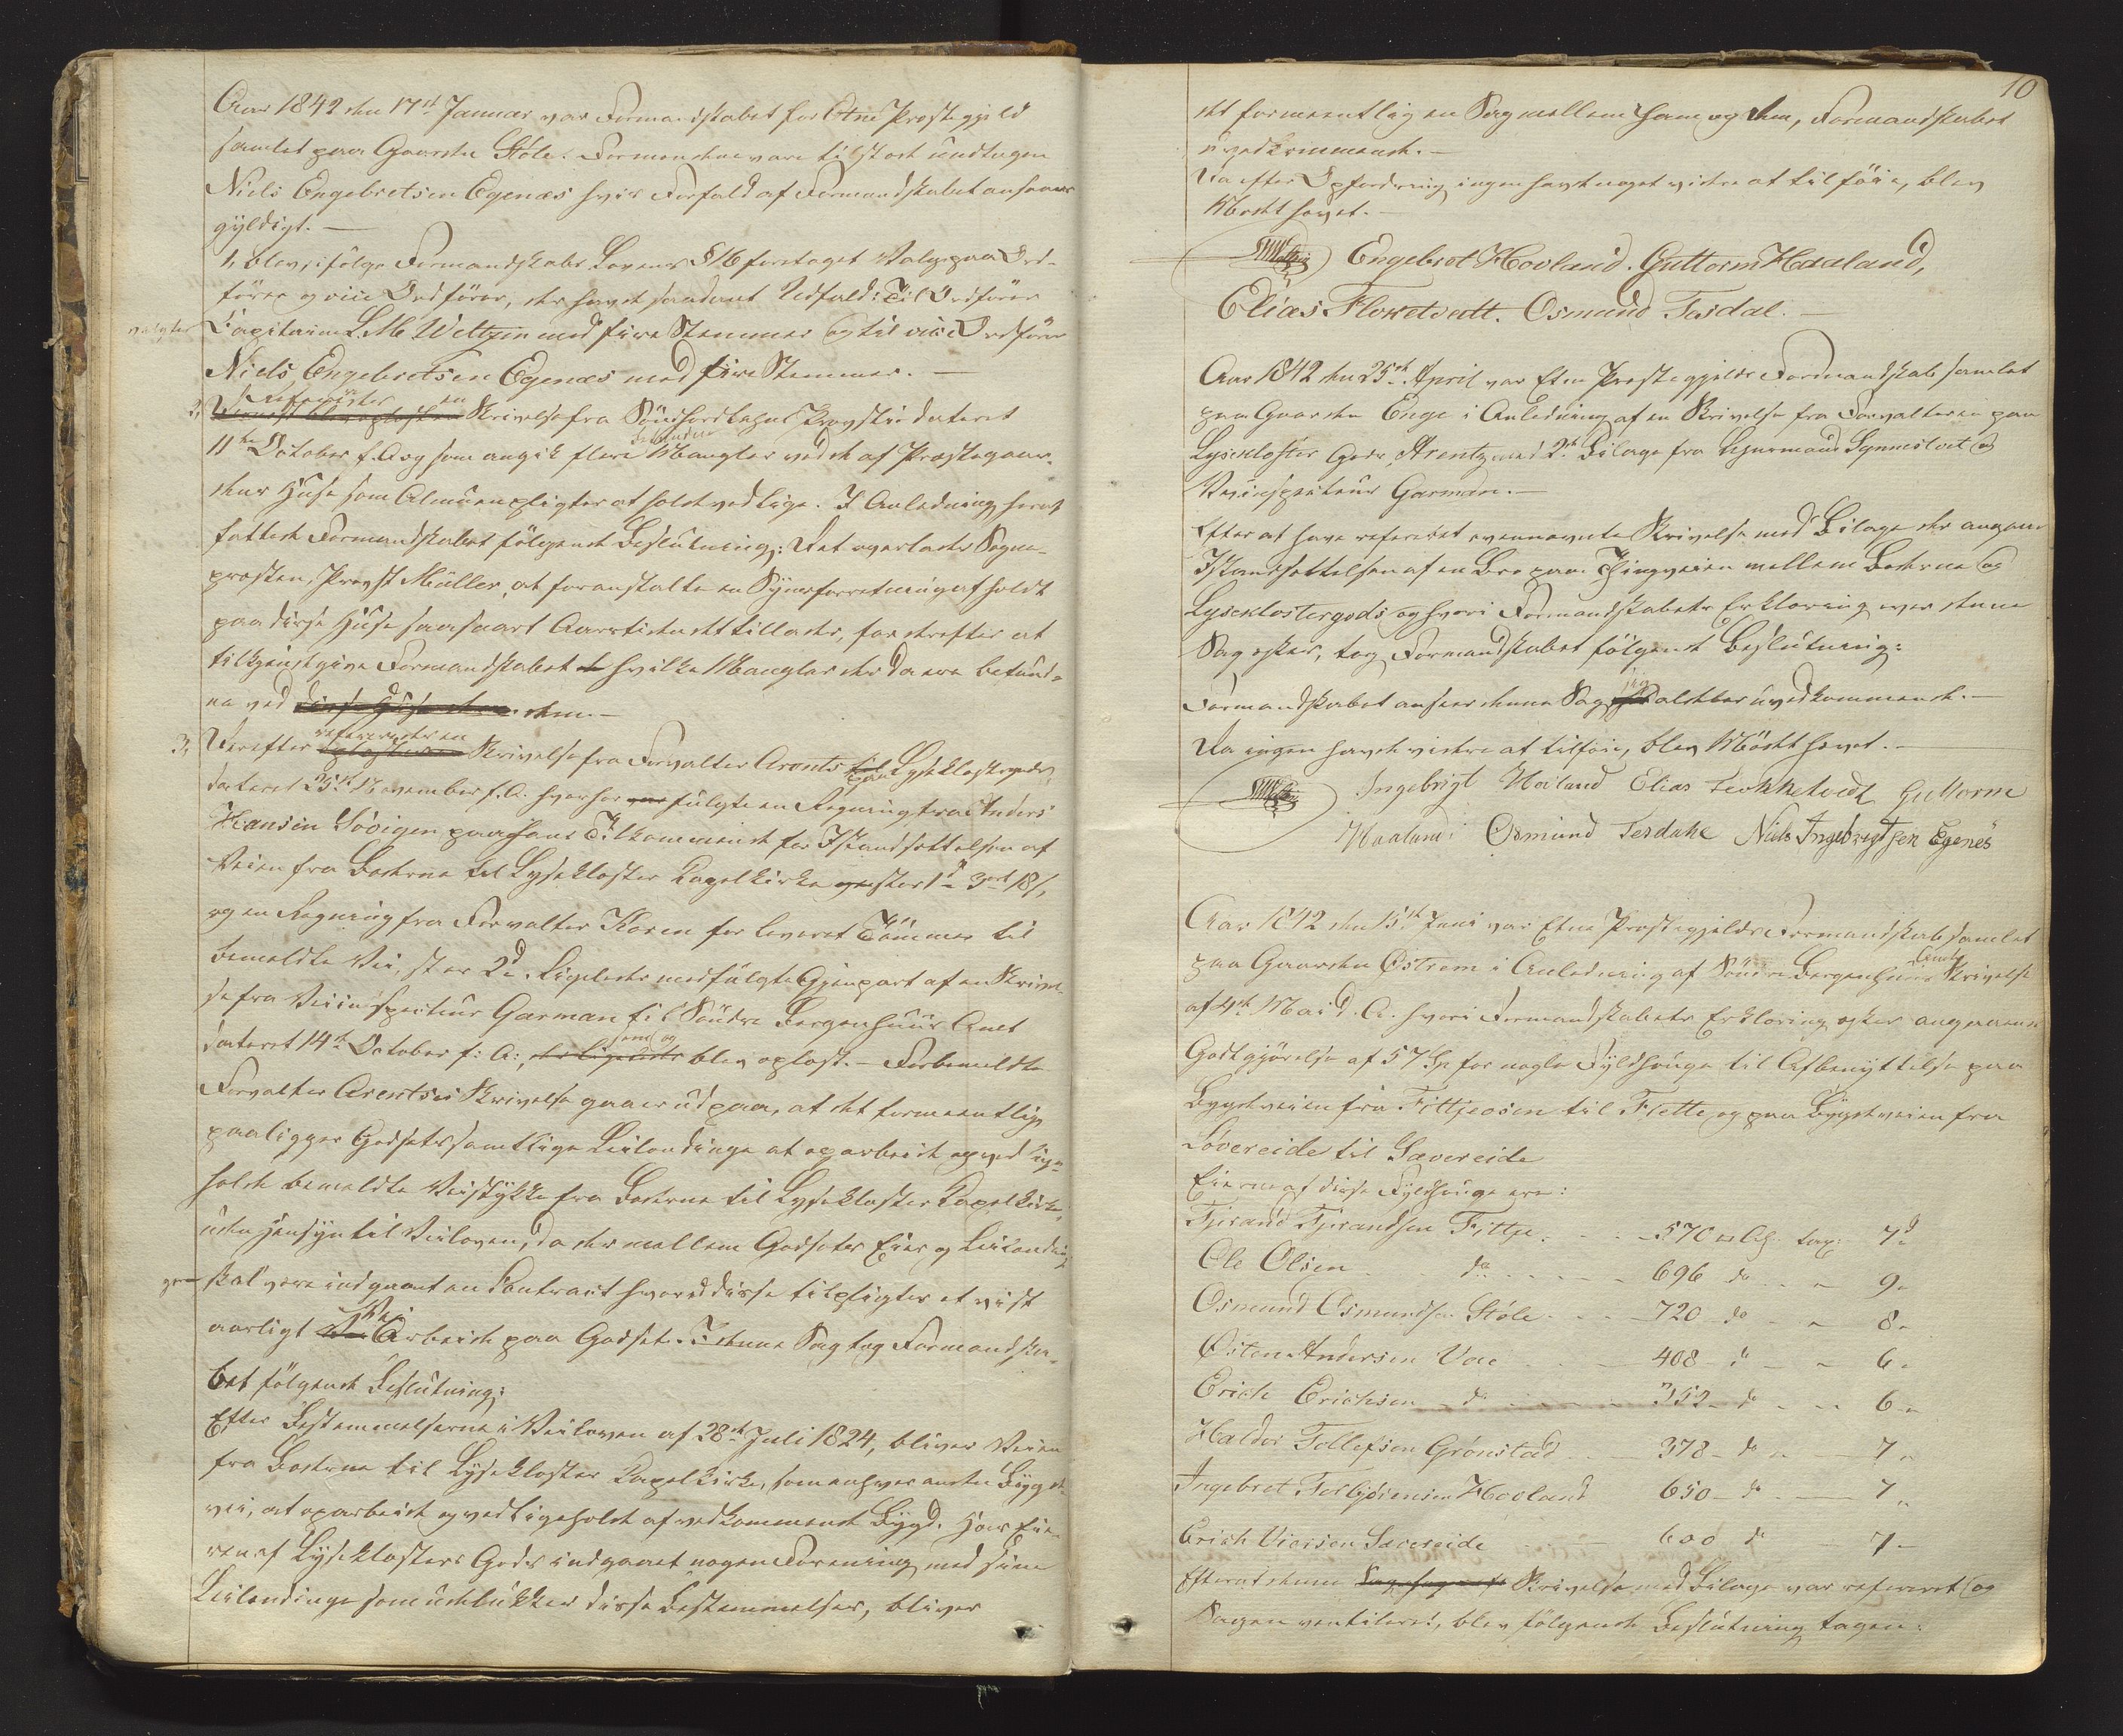 Aar 1842 den 17de Januar var Formandskabet for Etne Præstegjeld
samlet paa Gaarden Støle. Formændene vare tilstede undtagen
Niels Engebretsen Egenæs hvis Forfald af Formandskabet ansaaes
gyldigt. —
1, blev ifølge Formandskabs Lovens §16 foretaget Valg paa Ord-
fører og vice Ordfører, der havde saadant Udfald: Til Ordfører
valgtes Capitain L. M. Weltzin med fire Stemmer og til vice Ordfører
Niels Engebretsen Egenæs med fire Stemmer. —
2, Refereredes en Skrivelse fra Søndhordlehns Provstie dateret
11te October f. A. og som angik flere befundne Mangler ved de af Præstegaar-
dens Huse som Almuen pligter at holde vedlige. I Anledning heraf
fattede Formandskabet følgende Beslutning: Det overlades Sogne-
præsten, Provst Müller, at foranstalte en Synsforretning afholdt
paa disse Huse saasnart Aarstiden det tillader, for derefter at
tilkjendegive Formandskabet hvilke Mangler der da ere befund-
ne ved disse Huse dem. —
3, Derefter refereredes en Skrivelse fra Forvalter Arentz paa Lyseklostergods,
dateret 25de November f. A. hvorhos fulgte en Regning fra Anders
Hansen Søvigen paa hans Tilkommende for Istandsættelsen af
Veien fra Baderne til Lysekloster Capelkirke stor 1d 3ort 18s,
og en Regning fra Forvalter Koren for leveret Tømmer til
bemeldte Vei, stor 2d. Ligeledes medfulgte Gjenpart af en Skrivel-
se fra Veiinspecteur Garman til Søndre Bergenhuus Amt
dateret 14de October f: A:, som og blev oplæst. — Forbemeldte
Forvalter Arentzes Skrivelse gaaer ud paa, at det formeentlig
paaligger Godsets samtlige Leilendinge at oparbeide og ved lige-
holde bemeldte Veistykke fra Baderne til Lysekloster Capelkirke,
uden Hensyn til Veiloven, da der mellem Godsets Eier og Leilendin-
gene skal være indgaaet en Contract hvorved disse tilpligtes et vist
aarligt Vei Arbeide paa Godset. I denne Sag tog Formandska-
bet følgende Beslutning:
Efter Bestemmelserne i Veiloven af 28de Juli 1824, bliver Veien
fra Baderne til Lysekloster Capelkirke, som enhver anden Bygde-
vei, at oparbeide og vedligeholde af vedkommende Bygd. Har Eie-
ren af Lyseklosters Gods indgaaet nogen Forening med sine
Leilendinge som udelukker disse Bestemmelser, bliver
10
det formeentlig en Sag mellem ham og dem, Formandskabet
uvedkommende. —
Da efter Opfordring ingen havde noget videre at tilføie, blev
Mødet hævet. —
Engebret Hovland. Guttorm Haaland,
Elias Flokketvedt. Osmund Tesdal. —
Aar 1842 den 25de April var Etne Præstegjelds Formandskab samlet
paa Gaarden Enge i Anledning af en Skrivelse fra Forvalteren paa
Lysekloster Gods, Arentz med 2de Bilage fra Lensmand Synnestvet og
Veiinspecteur Garman. —
Efter at have refereret ovennævnte Skrivelse med Bilage der angaaer
Istandsættelsen af en Bro paa Thingveien mellem Baderne og
Lyseklostergods og hvori Formandskabets Erklæring over denne
Sag æskes, tog Formandskabet følgende Beslutning:
Formandskabet anseer denne Sag sig aldeles uvedkommende. —
Da ingen havde videre at tilføie, blev Mødet hævet. —
Ingebrigt Høiland Elias Flokketvedt Guttorm
Haaland Osmund Tesdahl Niels Ingebrigtsen Egenes
Aar 1842 den 15de Juni var Etne Præstegjelds Formandskab samlet
paa Gaarden Østrem i Anledning af Søndre Bergenhuus Amts Skrivelse
af 4de Mai d. A. hvori Formandskabets Erklæring æskes angaaende
Godtgjørelse af 57 Sp for nogle Fyldhouge til Afbenyttelse paa
Bygdeveien fra Fittjeosen til Flette og paa Bygdeveien fra
Løvereide til Sævereide
Eierne af disse Fyldhouge ere:
Tjerand Tjerandsen Fittje . . . 570 Al. tax: 7d
Ole Olsen do . . . . 696 do - 9 "
Osmund Osmundsen Støle . . . 720 do - 8 "
Østen Andersen Vae . . 408 do - 6 "
Erich Erichsen do . . . 352 do - 6 "
Haldor Tollefsen Grønstad . . 378 do - 7 "
Ingebret Torbjørnsen Hovland 650 do - 7 "
Erich Siversen Sævereide 600 do - 7 "
Efterat denne Skrivelse med Bilage var refereret og
Sagen ventileret, blev følgende Beslutning tagen: